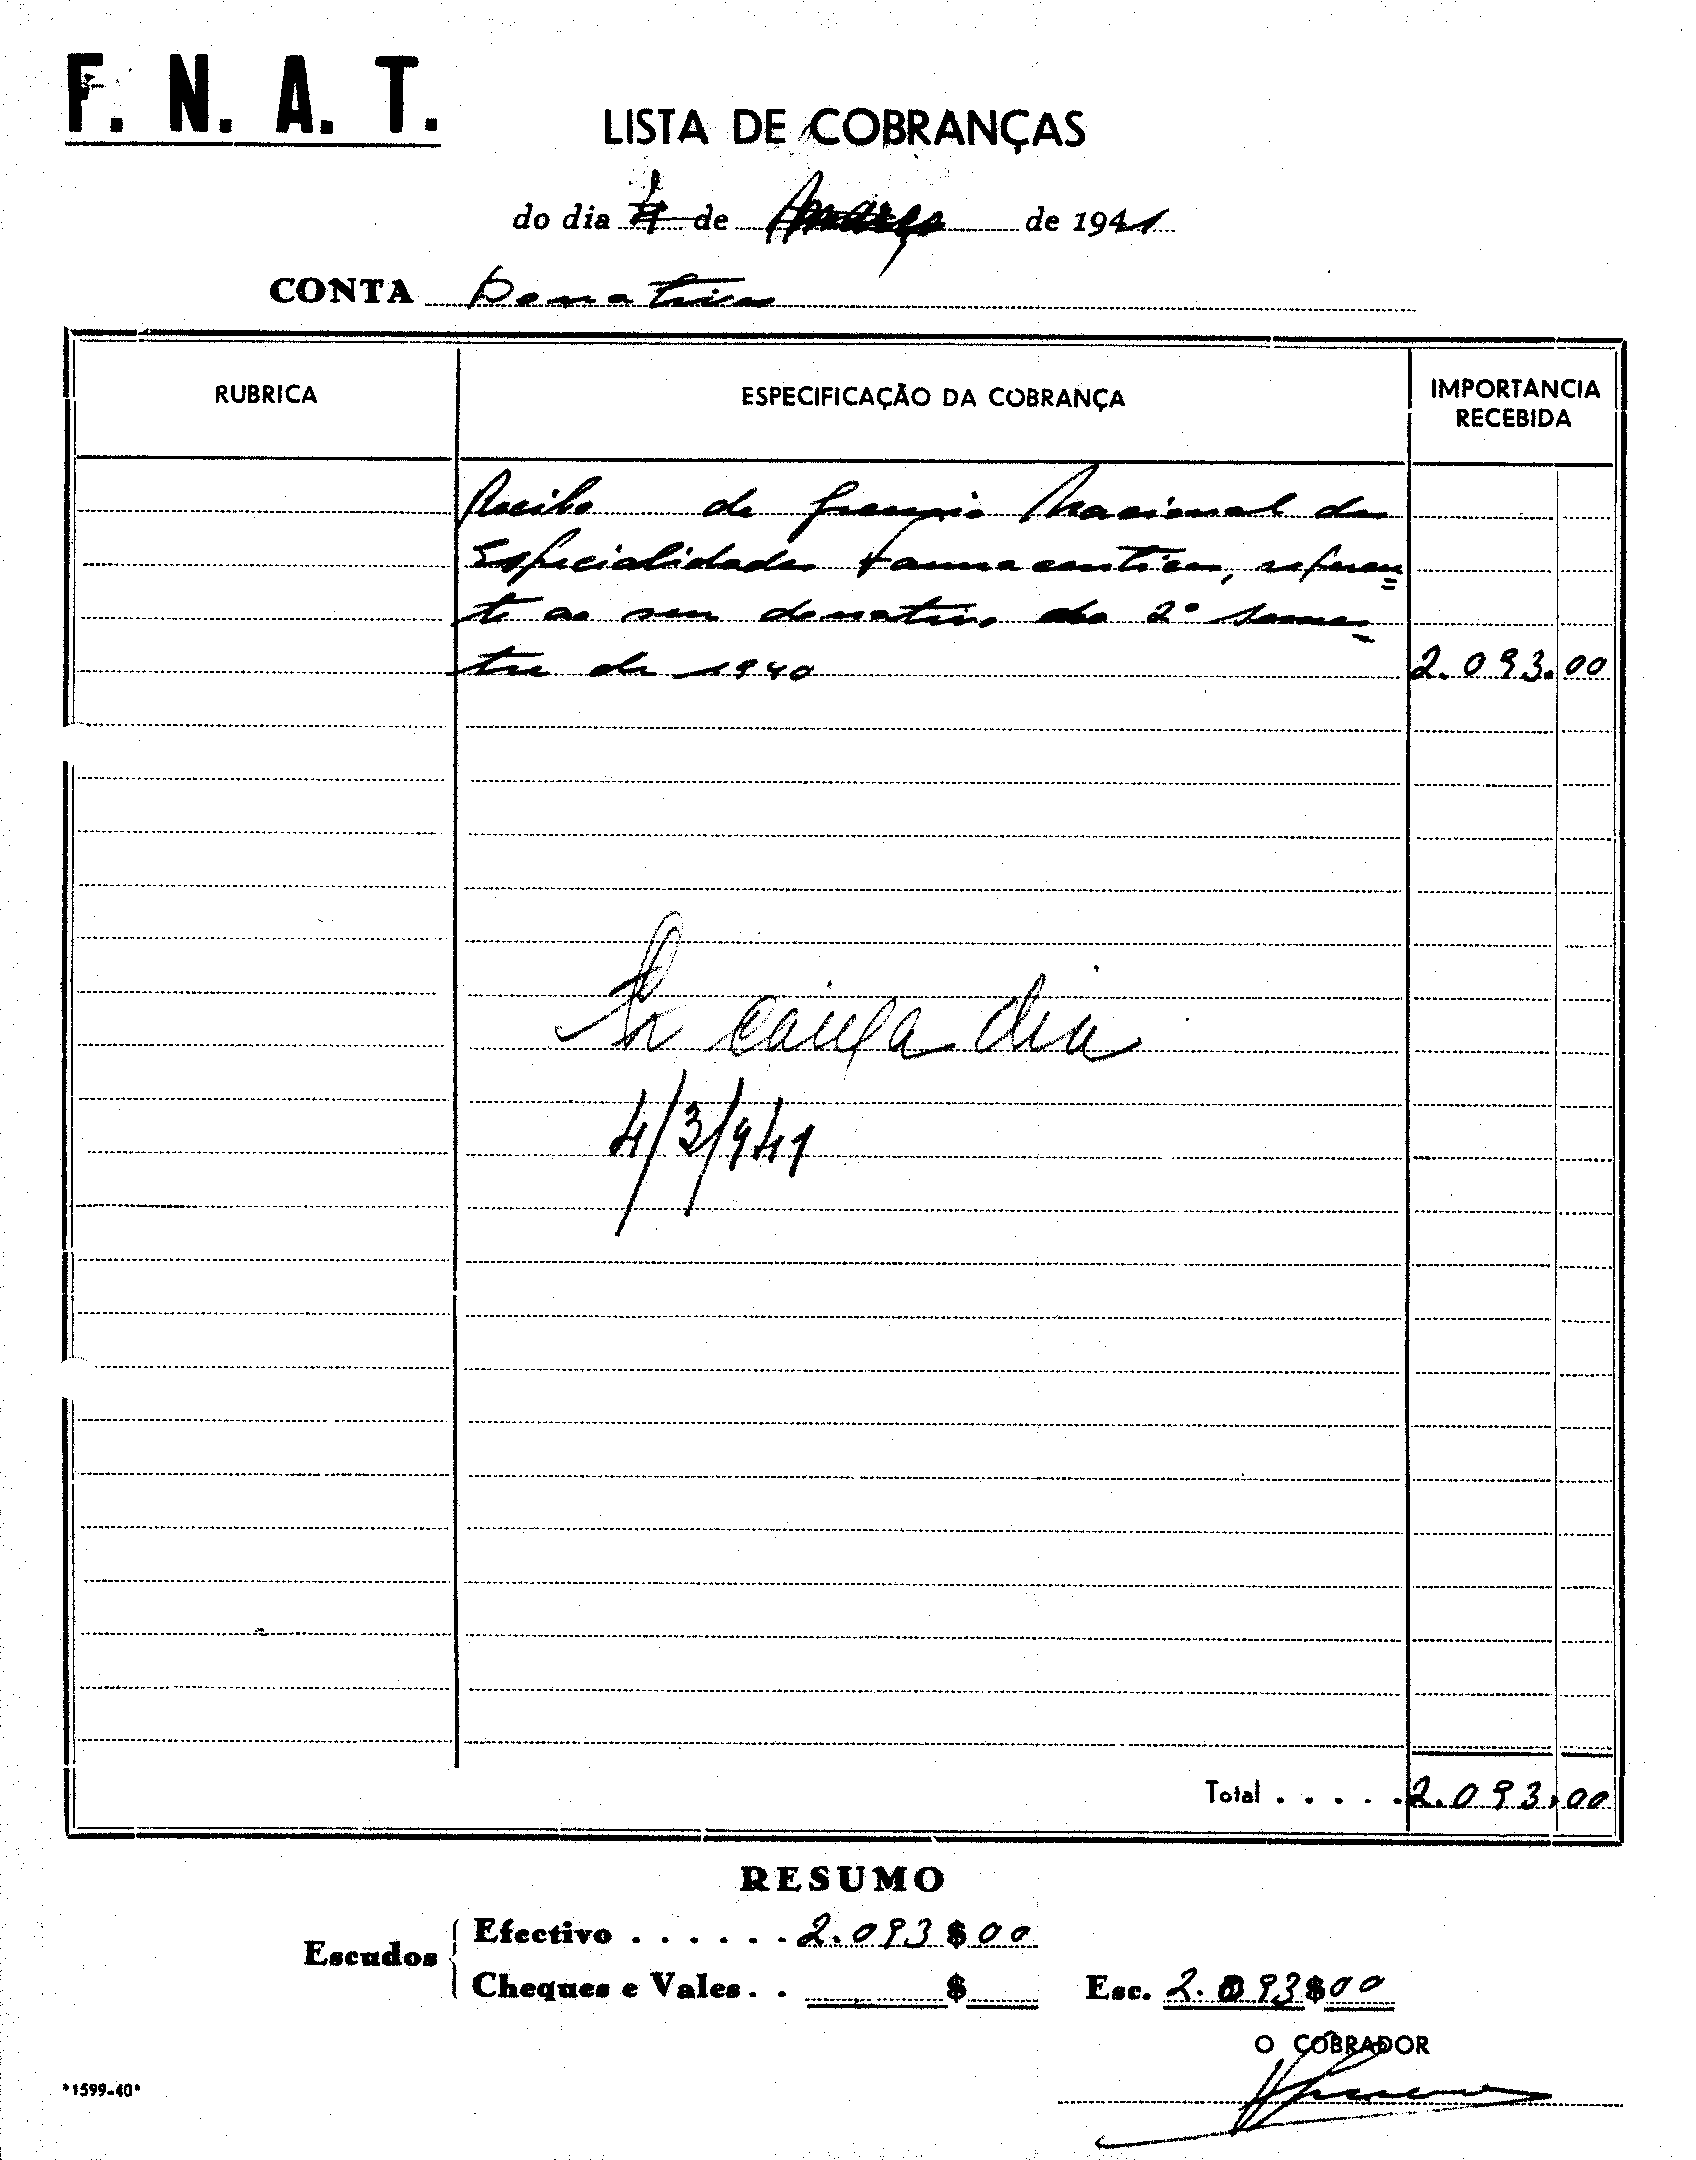 F. N. A. T.
LISTA DE COBRANÇAS
do dia 4 de Março de 1941
CONTA Donativos
RUBRICA
ESPECIFICAÇÃO DA COBRANÇA
IMPORTANCIA
RECEBIDA
Recibo do Gremio Nacional das
Especialidades Farmaceuticas, referen=
te ao seu donativo do 2º semes-
tre de 1940 2.093.00
caixa dia
4/3/941
Total . . . . . 2.093.00
RESUMO
Escudos
Efectivo . . . . . . 2.093$00
Cheques e Vales. . $
Esc. 2.093$00
O COBRADOR
*1599-40*